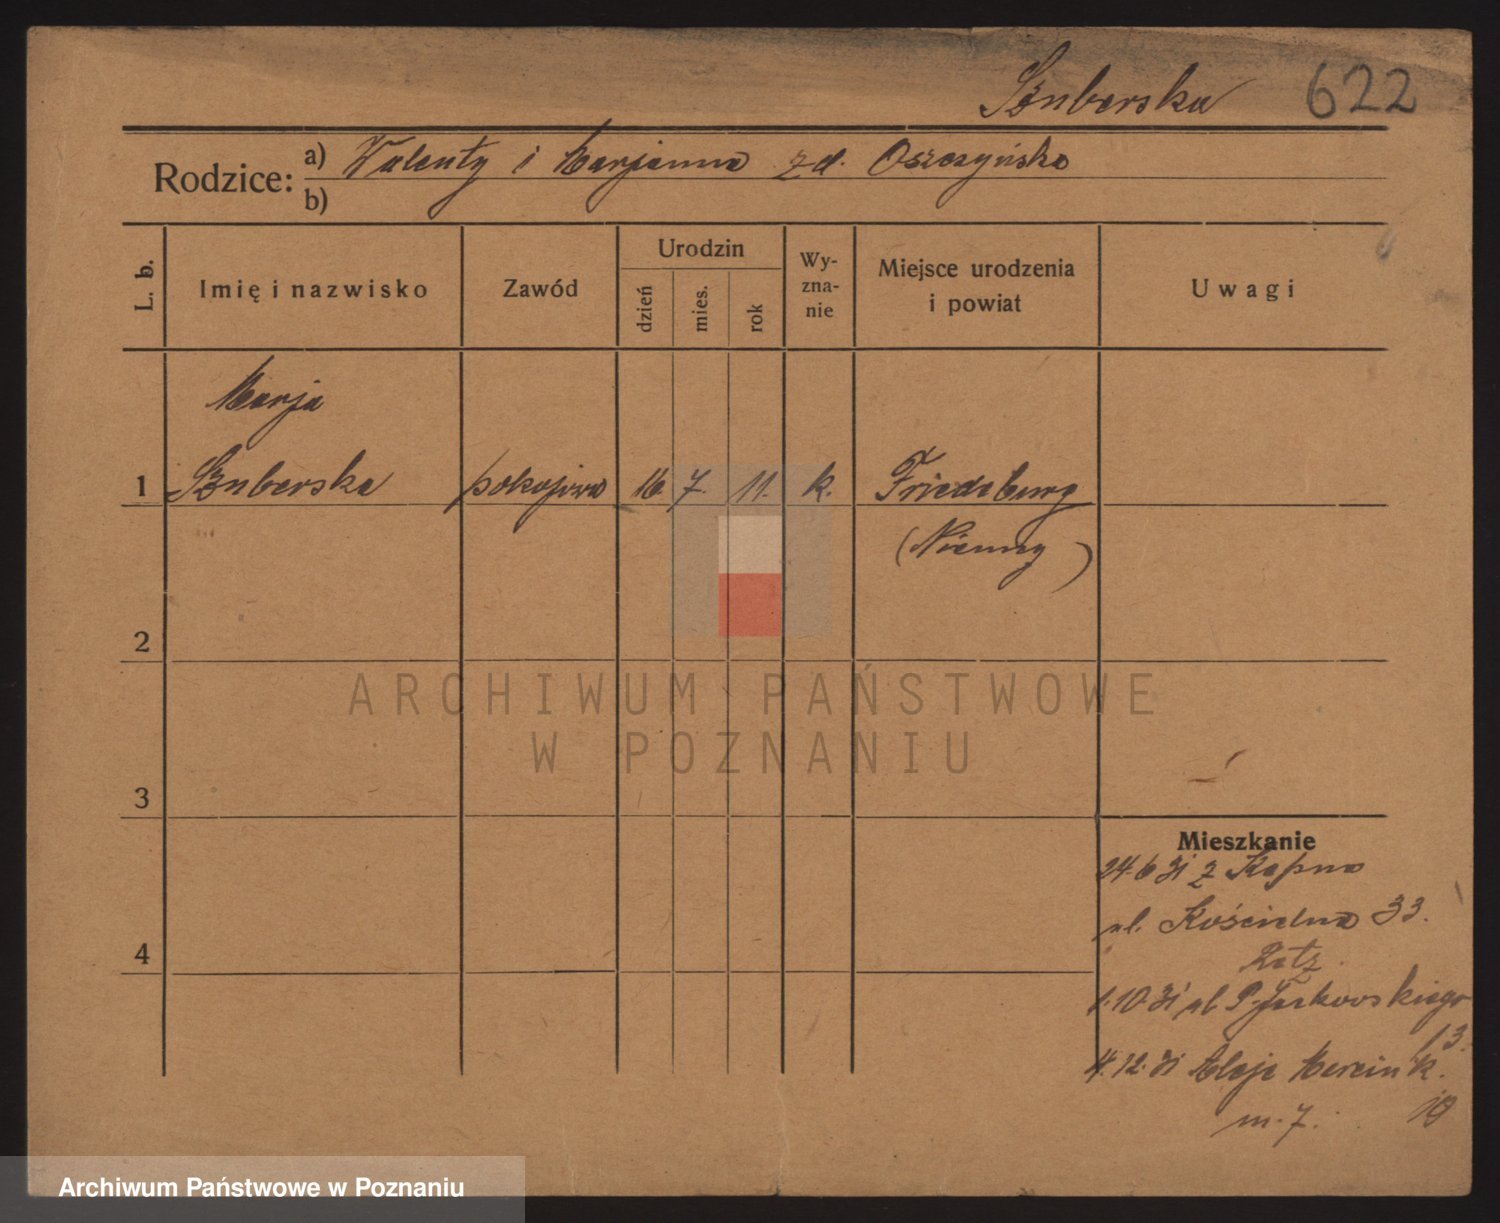 Szuberska 622
Rodzice: a) Walenty i Marjanna z d. Oszczyńska
b)
L. b. Imię i nazwisko Zawód Urodzin dzień mies. rok Wyznanie Miejsce urodzenia i powiat Uwagi
Marja
1 Szuberska pokojowa 16 7. 11. k. Friedeburg
(Niemcy)
2
ARCHIWUM PAŃSTWOWE
W POZNANIU
3
Mieszkanie
24.6 31 z
ul. Kościelna 33.
4
1.10.31 ul
13.
4.12.31 Aleje Marcink. 19
m. 7.
Archiwum Państwowe w Poznaniu